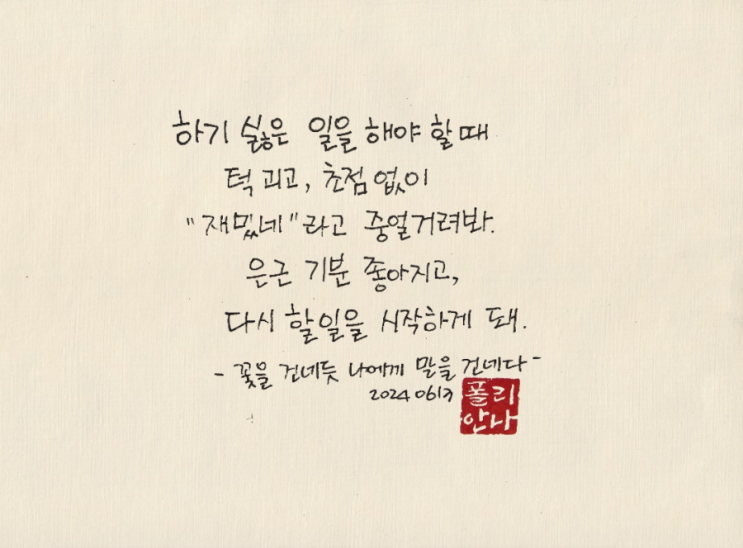 하기 싫은 일을 해야 할 때
턱 괴고, 초점 없이
"재밌네"라고 중얼거려봐.
은근 기분 좋아지고,
다시 할일을 시작하게 돼.
- 꽃을 건네듯 나에게 말을 건네다 -
2024 0613
폴리
안나